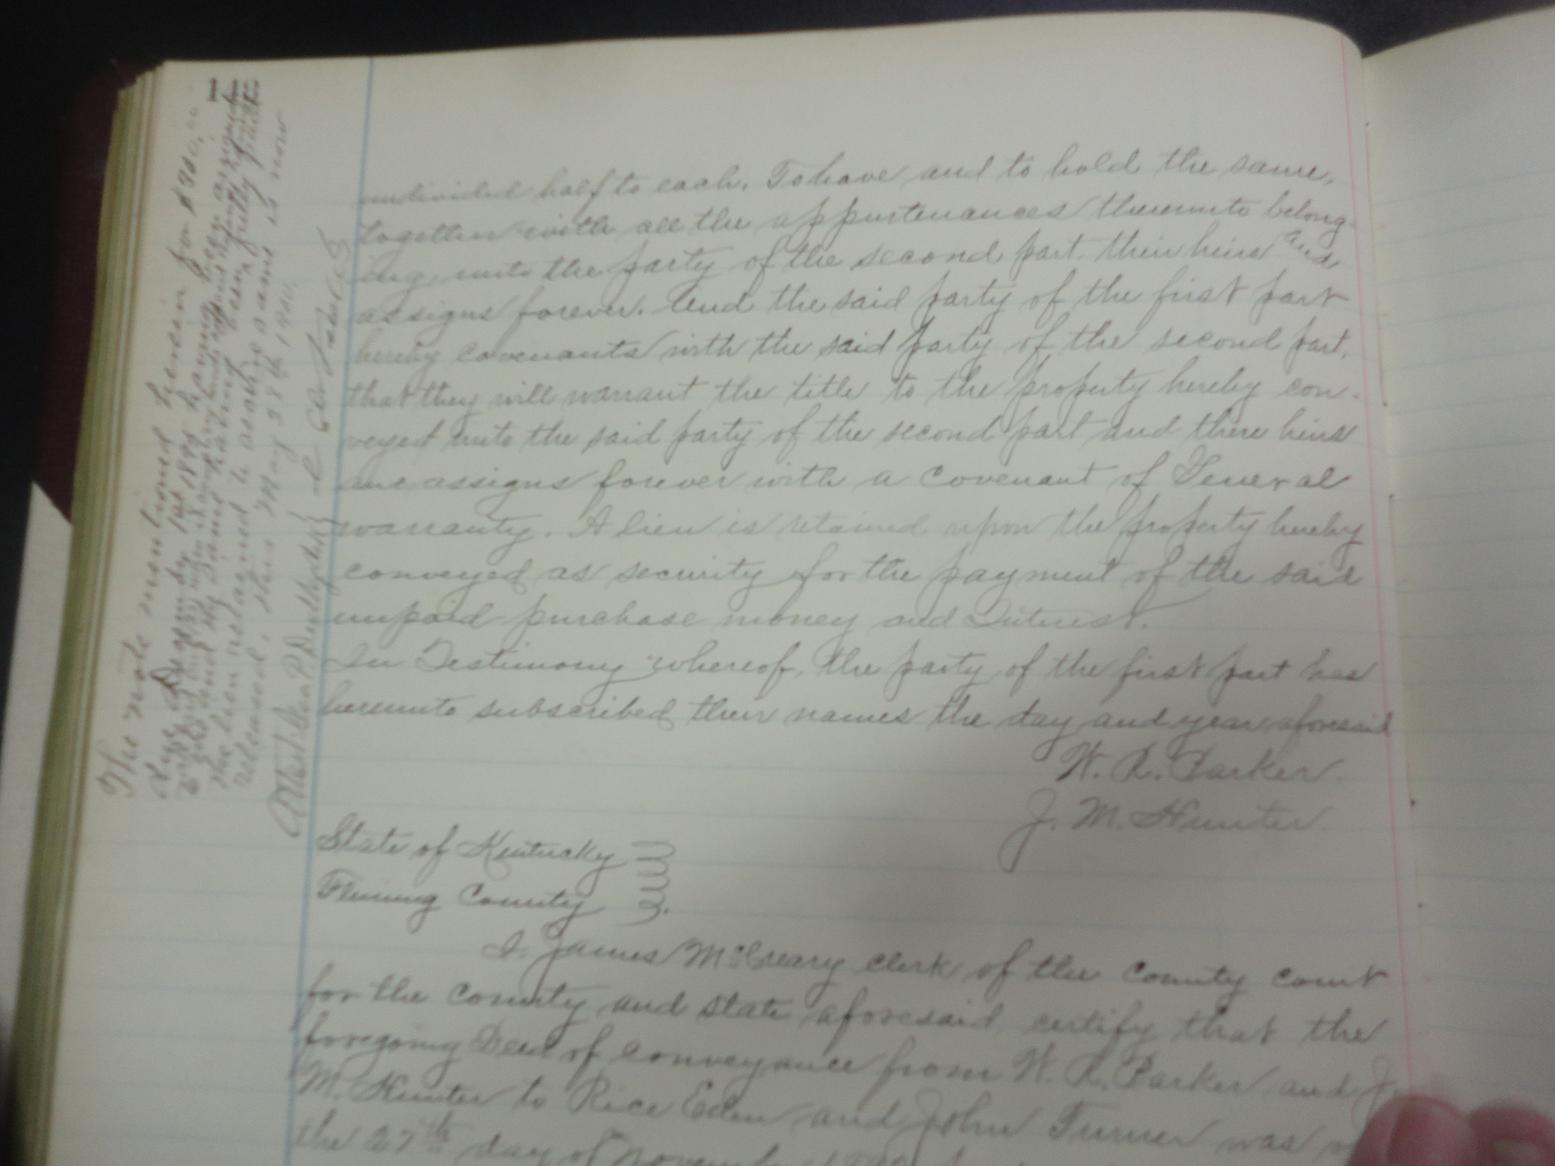 148
undivided half to each. To have and to hold the same,
together with all the appurtenances thereunto belong-
ing, unto the party of the second part their heirs and
assigns forever. And the said party of the first part
hereby covenants with the said party of the second part,
that they will warrant the title to the property hereby con-
veyed unto the said party of the second part and there heirs
and assigns forever with a covenant of General
warranty. A lien is retained upon the property hereby
conveyed as security for the payment of the said
unpaid purchase money and Interest.
In Testimony whereof, the party of the first part has
hereunto subscribed their names the day and year aforesaid
W. R. Parker.
J. M. Hunter.
State of Kentucky
Fleming County
I. James McCreary clerk of the county court
for the county and state aforesaid certify that the
foregoing Deed of conveyance from W. R. Parker and J.
M. Hunter to Rice Eden and John Turner was
the 27th day of November
The note mentioned herein for
due December 1st 1899 having been assigned
and the same having been fully paid
the lien retained to secure same is now
released, this May 28th 1900.